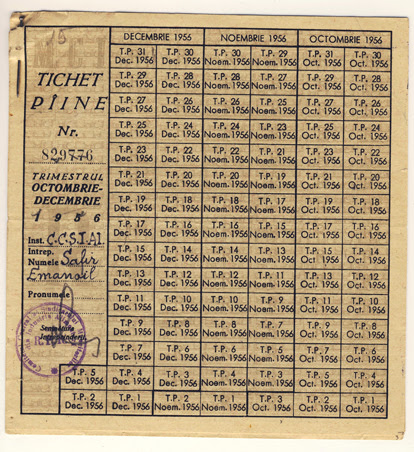 15
TICHET
PÎINE
Nr.
829776
TRIMESTRUL
OCTOMBRIE-
DECEMBRIE
1956
Inst. C.C.S.I.A.I.
Întrep.
Numele Safir
Emanoil
Pronumele
DECEMBRIE 1956 NOEMBRIE 1956 OCTOMBRIE 1956
T.P. 31 T.P. 30 T.P. 30 T.P. 29 T.P. 31 T.P. 30
Dec. 1956 Dec. 1956 Noem. 1956 Noem. 1956 Oct. 1956 Oct. 1956
T.P. 29 T.P. 28 T.P. 28 T.P. 27 T.P. 29 T.P. 28
Dec. 1956 Dec. 1956 Noem. 1956 Noem. 1956 Oct. 1956 Oct. 1956
T.P. 27 T.P. 26 T.P. 26 T.P. 25 T.P. 27 T.P. 26
Dec. 1956 Dec. 1956 Noem. 1956 Noem. 1956 Oct. 1956 Oct. 1956
T.P. 25 T.P. 24 T.P. 24 T.P. 23 T.P. 25 T.P. 24
Dec. 1956 Dec. 1956 Noem. 1956 Noem. 1956 Oct. 1956 Oct. 1956
T.P. 23 T.P. 22 T.P. 22 T.P. 21 T.P. 23 T.P. 22
Dec. 1956 Dec. 1956 Noem. 1956 Noem. 1956 Oct. 1956 Oct. 1956
T.P. 21 T.P. 20 T.P. 20 T.P. 19 T.P. 21 T.P. 20
Dec. 1956 Dec. 1956 Noem. 1956 Noem. 1956 Oct. 1956 Oct. 1956
T.P. 19 T.P. 18 T.P. 18 T.P. 17 T.P. 19 T.P. 18
Dec. 1956 Dec. 1956 Noem. 1956 Noem. 1956 Oct. 1956 Oct. 1956
T.P. 17 T.P. 16 T.P. 16 T.P. 15 T.P. 17 T.P. 16
Dec. 1956 Dec. 1956 Noem. 1956 Noem. 1956 Oct. 1956 Oct. 1956
T.P. 15 T.P. 14 T.P. 14 T.P. 13 T.P. 15 T.P. 14
Dec. 1956 Dec. 1956 Noem. 1956 Noem. 1956 Oct. 1956 Oct. 1956
T.P. 13 T.P. 12 T.P. 12 T.P. 11 T.P. 13 T.P. 12
Dec. 1956 Dec. 1956 Noem. 1956 Noem. 1956 Oct. 1956 Oct. 1956
T.P. 11 T.P. 10 T.P. 10 T.P. 9 T.P. 11 T.P. 10
Dec. 1956 Dec. 1956 Noem. 1956 Noem. 1956 Oct. 1956 Oct. 1956
T.P. 9 T.P. 8 T.P. 8 T.P. 7 T.P. 9 T.P. 8
Dec. 1956 Dec. 1956 Noem. 1956 Noem. 1956 Oct. 1956 Oct. 1956
T.P. 7 T.P. 6 T.P. 6 T.P. 5 T.P. 7 T.P. 6
Dec. 1956 Dec. 1956 Noem. 1956 Noem. 1956 Oct. 1956 Oct. 1956
T.P. 5 T.P. 4 T.P. 3 T.P. 4 T.P. 3 T.P. 5 T.P. 4
Dec. 1956 Dec. 1956 Dec. 1956 Noem. 1956 Noem. 1956 Oct. 1956 Oct. 1956
T.P. 2 T.P. 1 T.P. 2 T.P. 1 T.P. 3 T.P. 2 T.P. 1
Dec. 1956 Dec. 1956 Noem. 1956 Noem. 1956 Oct. 1956 Oct. 1956 Oct. 1956